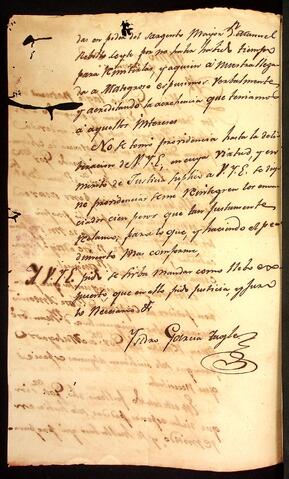 das en poder del Sargento Mayor Dn. Manuel
Rebelo Leyte por no haber habido tiempo
para remitirlas, y aquien a nuestra llega
da a Matogroso expusimos verbalmente
y acreditando la acrehencia que teniamos
a aquellos Intereses
No se tomo providencia hasta la deli
veracion de V.E. en cuya virtud y en
merito de Justicia suplico a V.E. se dig
ne providenciar se me reintegren los enun
ciados cien pesos que tan justamente
reclamo, para lo que, y haciendo el pe
dimento mas conforme,
A V.E. pido se sirva mandar como llebo ex
puesto, que en ello pido justicia y juro
lo necesario &
Ysidro Garcia Tagle